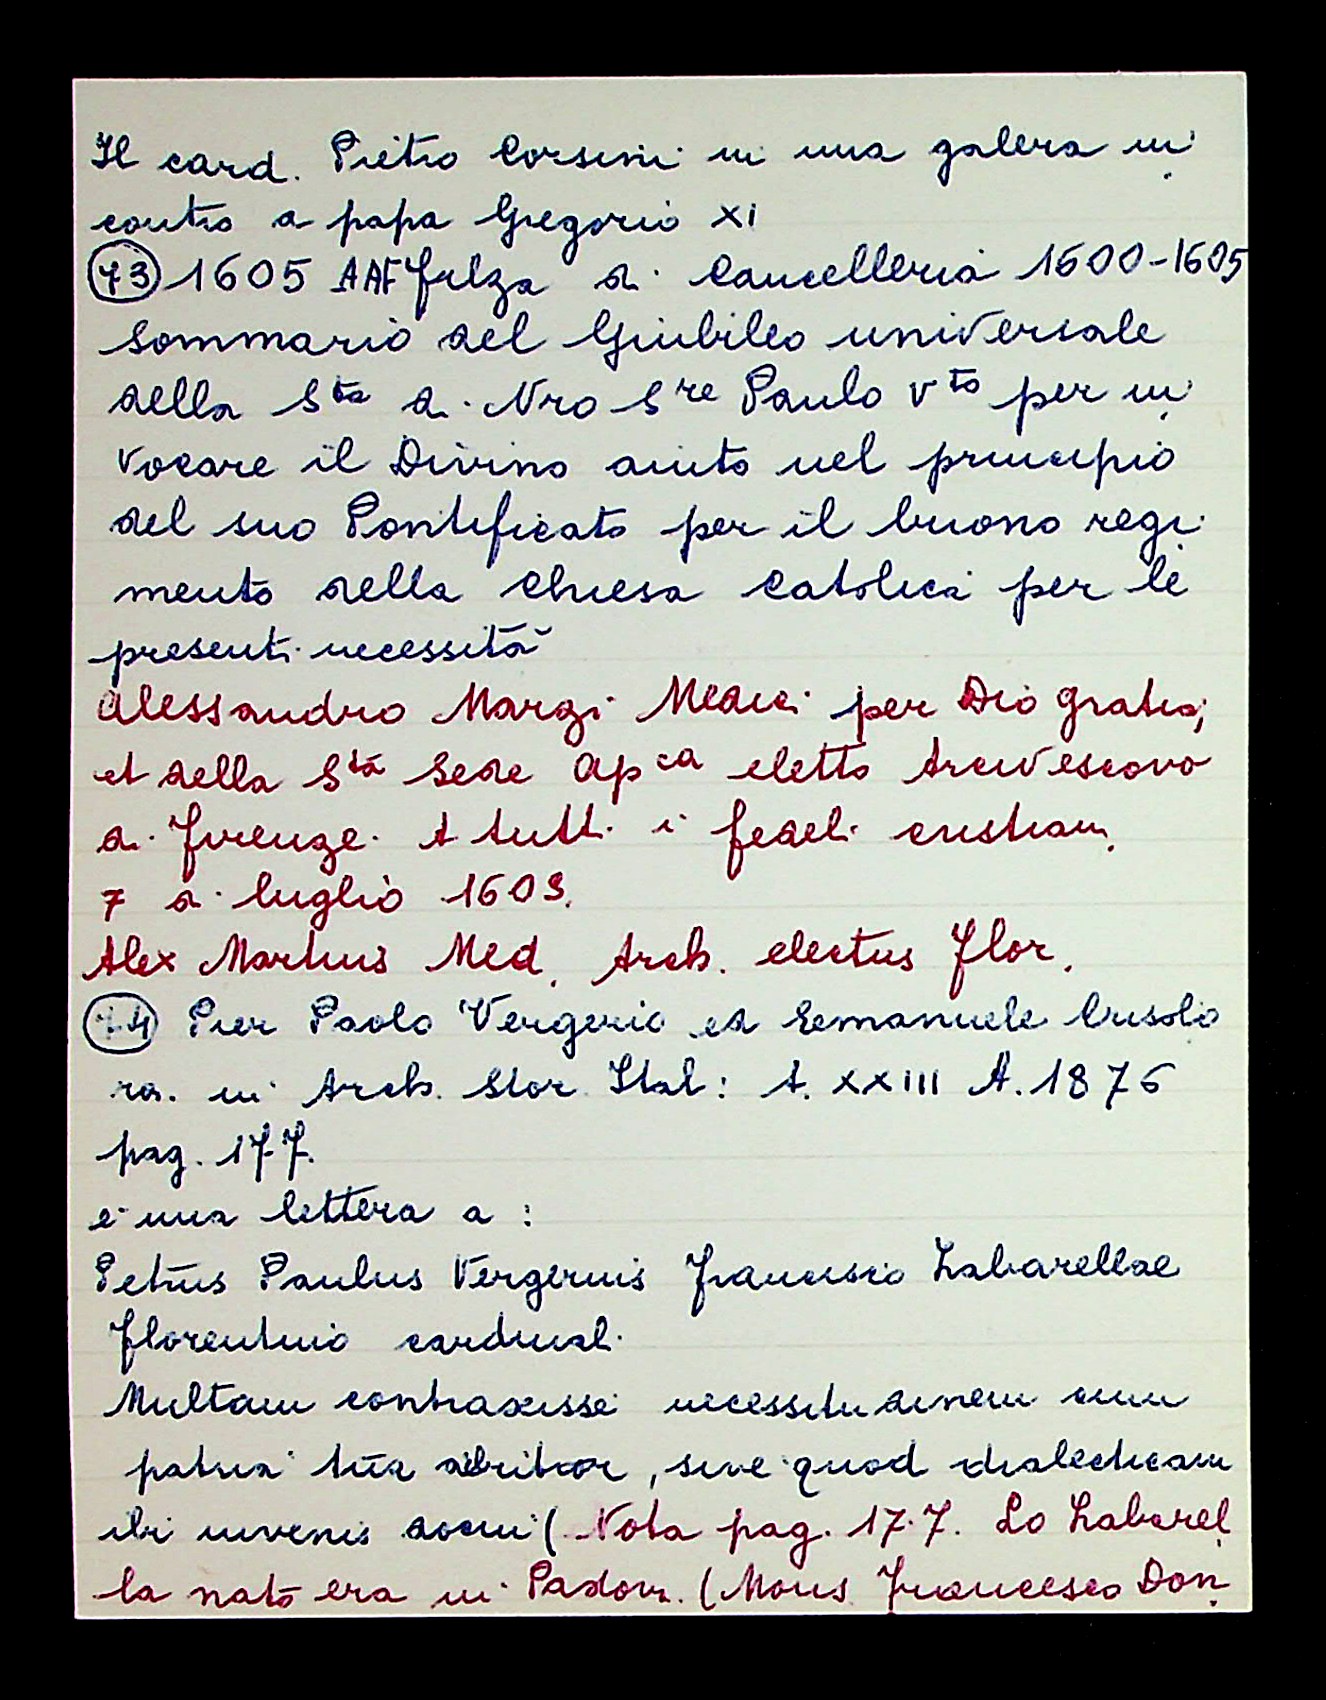 Il card. Pietro Corsini in una galera in
contro a papa Gregorio XI
(73) 1605 AAF filza di Cancelleria 1600-1605
Sommario del Giubileo universale
della Sta di Nro Sre Paulo vto per in
vocare il Divino aiuto nel principio
del suo Pontificato per il buono regi
mento della Chiesa Catolica per le
presenti necessità
Alessandro Marzi Medici per Dio gratia,
et della Sta Sede Apca eletto Arcivescovo
di Firenze. A tutti i fedeli cristiani
7 di luglio 1605.
Alex Martius Med. Arch. electus Flor.
(74) Pier Paolo Vergerio ed Eemanuele Crisolo
ra. in Arch. Stor. Ital: t. XXIII A. 1876
pag. 177.
è una lettera a:
Petrus Paulus Vergerius Francisco Zabarellae
florentino cardinali
Multam contraxisse necessitudinem cum
patria tua arbitror, sive quod dialecticam
ibi iuvenis docui (Nota pag. 177. Lo Zabarel
la nato era in Padova. (Mons Francesco Don